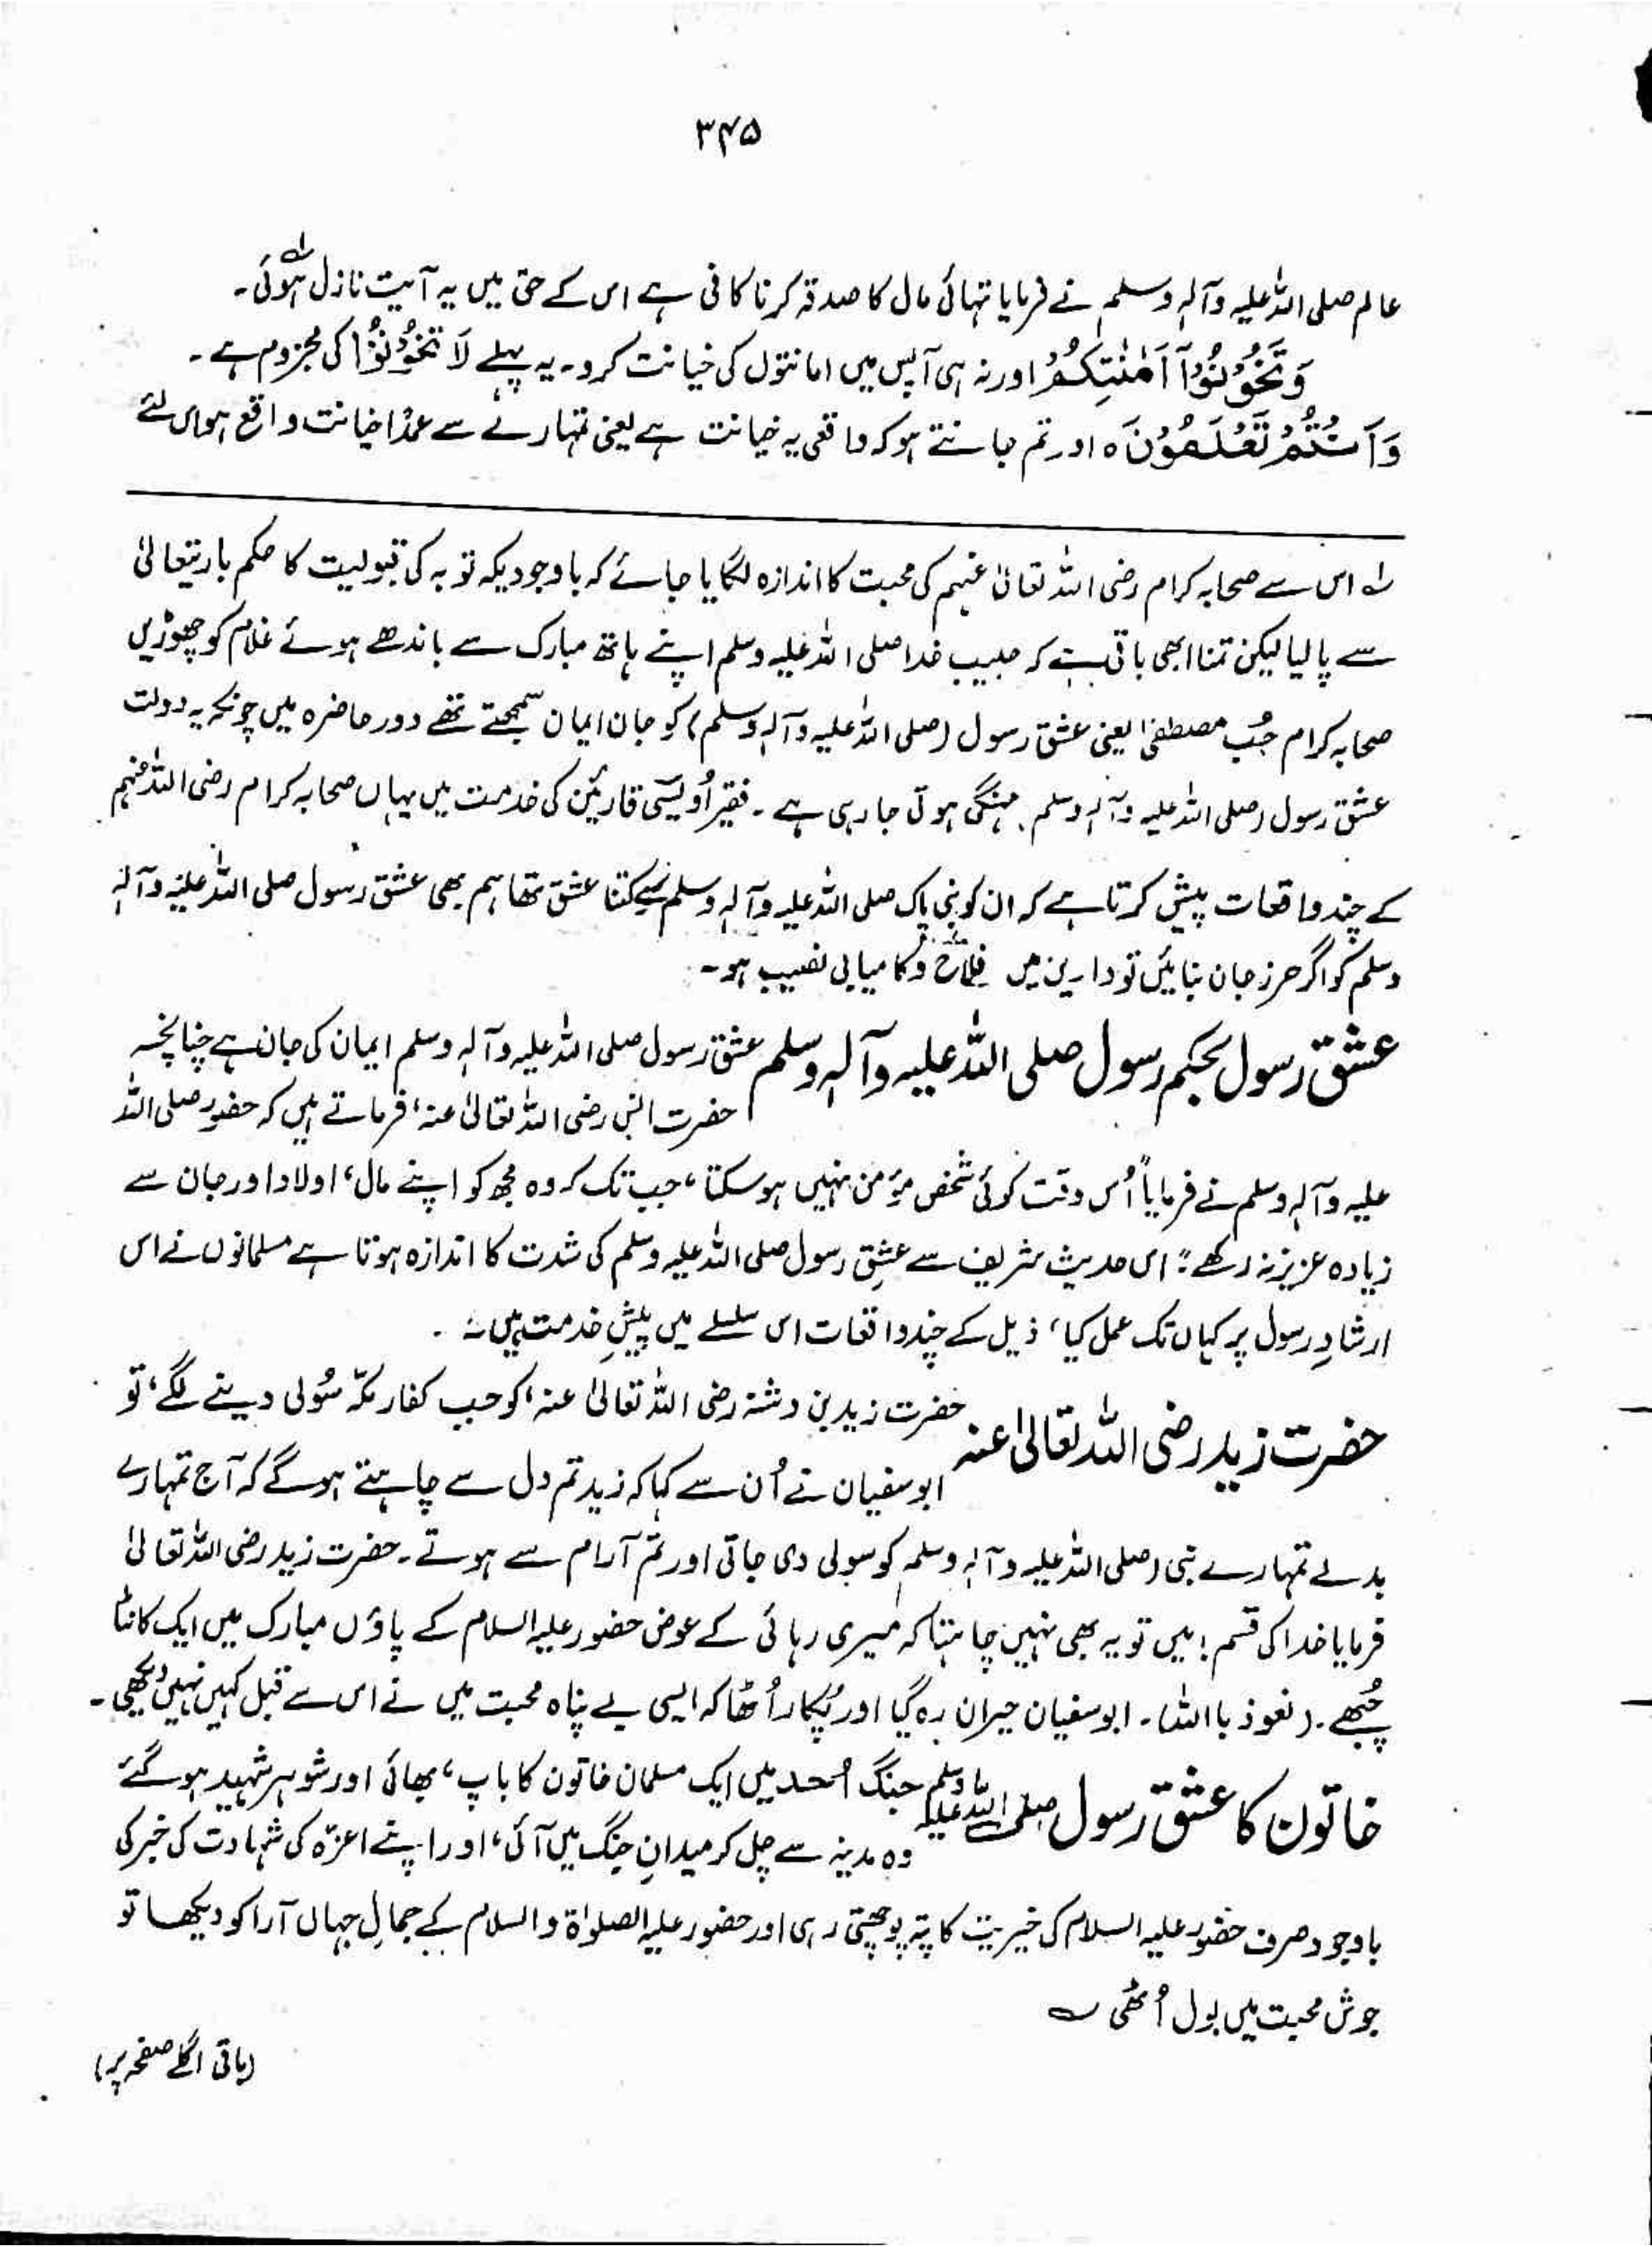 ۳۴۵
عالم صلی اللہ علیہ وآلہٖ وسلم نے فرمایا تہائی مال کا صدقہ کرنا کافی ہے اس کے حق میں یہ آیت نازل ہوئی۔ لہ
وَتَخُوْنُوْآ اَمٰنٰتِكُمْ اور نہ ہی آپس میں امانتوں کی خیانت کرو۔ یہ پہلے لَا تَخُوْنُوْا کی مجزوم ہے۔
وَاَنْتُمْ تَعْلَمُوْنَ ہ اور تم جانتے ہو کہ واقعی یہ خیانت ہے یعنی تمہارے سے عمداً خیانت واقع ہو اس لئے
لہ اس سے صحابہ کرام رضی اللہ تعالیٰ عنہم کی محبت کا اندازہ لگایا جائے کہ باوجودیکہ توبہ کی قبولیت کا حکم باریتعالیٰ
سے پا لیا لیکن تمنا ابھی باقی ہے کہ حبیب خدا صلی اللہ علیہ وسلم اپنے ہاتھ مبارک سے باندھے ہوئے غلام کو چھوڑیں
صحابہ کرام حُبِ مصطفیٰ یعنی عشق رسول (صلی اللہ علیہ وآلہٖ وسلم) کو جان ایمان سمجھتے تھے دور حاضرہ میں چونکہ یہ دولت
عشق رسول (صلی اللہ علیہ وآلہٖ وسلم) مہنگی ہوتی جا رہی ہے۔ فقیر اُویسی قارئین کی خدمت میں یہاں صحابہ کرام رضی اللہ عنہم
کے چند واقعات پیش کرتا ہے کہ ان کو نبی پاک صلی اللہ علیہ وآلہٖ وسلم سے کتنا عشق تھا ہم بھی عشق رسول صلی اللہ علیہ وآلہٖ
وسلم کو اگر حرز جان بنائیں تو دارین میں فلاح و کامیابی نصیب ہو۔
عشق رسول بحکم رسول صلی اللہ علیہ وآلہٖ وسلم عشق رسول صلی اللہ علیہ وآلہٖ وسلم ایمان کی جان ہے چنانچہ
حضرت انس رضی اللہ تعالیٰ عنہ، فرماتے ہیں کہ حضور صلی اللہ
علیہ وآلہٖ وسلم نے فرمایا "اُس وقت کوئی شخص مؤمن نہیں ہو سکتا، جب تک کہ وہ مجھ کو اپنے مال، اولاد اور جان سے
زیادہ عزیز نہ رکھے"۔ اس حدیث شریف سے عشقِ رسول صلی اللہ علیہ وسلم کی شدت کا اندازہ ہوتا ہے مسلمانوں نے اس
ارشادِ رسول پر کہاں تک عمل کیا، ذیل کے چند واقعات اس سلسلے میں پیشِ خدمت ہیں۔
حضرت زید رضی اللہ تعالیٰ عنہ حضرت زید بن دشنہ رضی اللہ تعالیٰ عنہ، کو جب کفار مکّہ سُولی دینے لگے، تو
ابوسفیان نے اُن سے کہا کہ زید تم دل سے چاہتے ہو گے کہ آج تمہارے
بدلے تمہارے نبی (صلی اللہ علیہ وآلہٖ وسلم) کو سولی دی جاتی اور تم آرام سے ہوتے۔ حضرت زید رضی اللہ تعالیٰ
فرمایا خدا کی قسم! میں تو یہ بھی نہیں چاہتا کہ میری رہائی کے عوض حضور علیہ السلام کے پاؤں مبارک میں ایک کانٹا
چُبھے۔ (نعوذ باللہ)۔ ابوسفیان حیران رہ گیا اور پُکار اُٹھا کہ ایسی بے پناہ محبت میں نے اس سے قبل کہیں نہیں دیکھی۔
خاتون کا عشق رسول صلی اللہ علیہ وسلم جنگ اُحد میں ایک مسلمان خاتون کا باپ، بھائی اور شوہر شہید ہو گئے
وہ مدینہ سے چل کر میدانِ جنگ میں آئی، اور اپنے اعزّہ کی شہادت کی خبر کی
باوجود صرف حضور علیہ السلام کی خیریت کا پتہ پوچھتی رہی اور حضور علیہ الصلوٰۃ والسلام کے جمالِ جہاں آرا کو دیکھا تو
جوش محبت میں بول اُٹھی ؎
(باقی اگلے صفحہ پر)